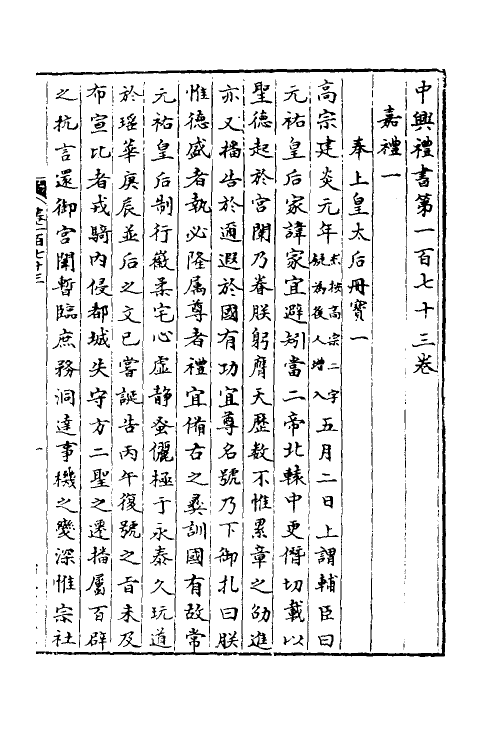 中興禮書第一百七十三卷
嘉禮一
奉上皇太后冊寶一
高宗建炎元年案按高宗二字疑為後人增入五月二日上謂輔臣曰
元祐皇后家諱家宜避矧當二帝北轅中更僭切載以
聖德起於宮闈乃眷朕躬膺天歷數不惟累章之劭進
亦又播告於邇遐於國有功宜尊名號乃下御扎曰朕
惟德盛者執必隆属尊者禮宜備古之彞訓國有故常
元祐皇后制行徽柔宅心虛静蚤儷極于永泰久玩道
於瑶華庚辰並后之文已嘗誕告丙午復號之旨未及
布宣比者戎騎內侵都城失守方二聖之遷播屬百辟
之抗言還御宮闈暫臨庶務洞達事機之變深惟宗社